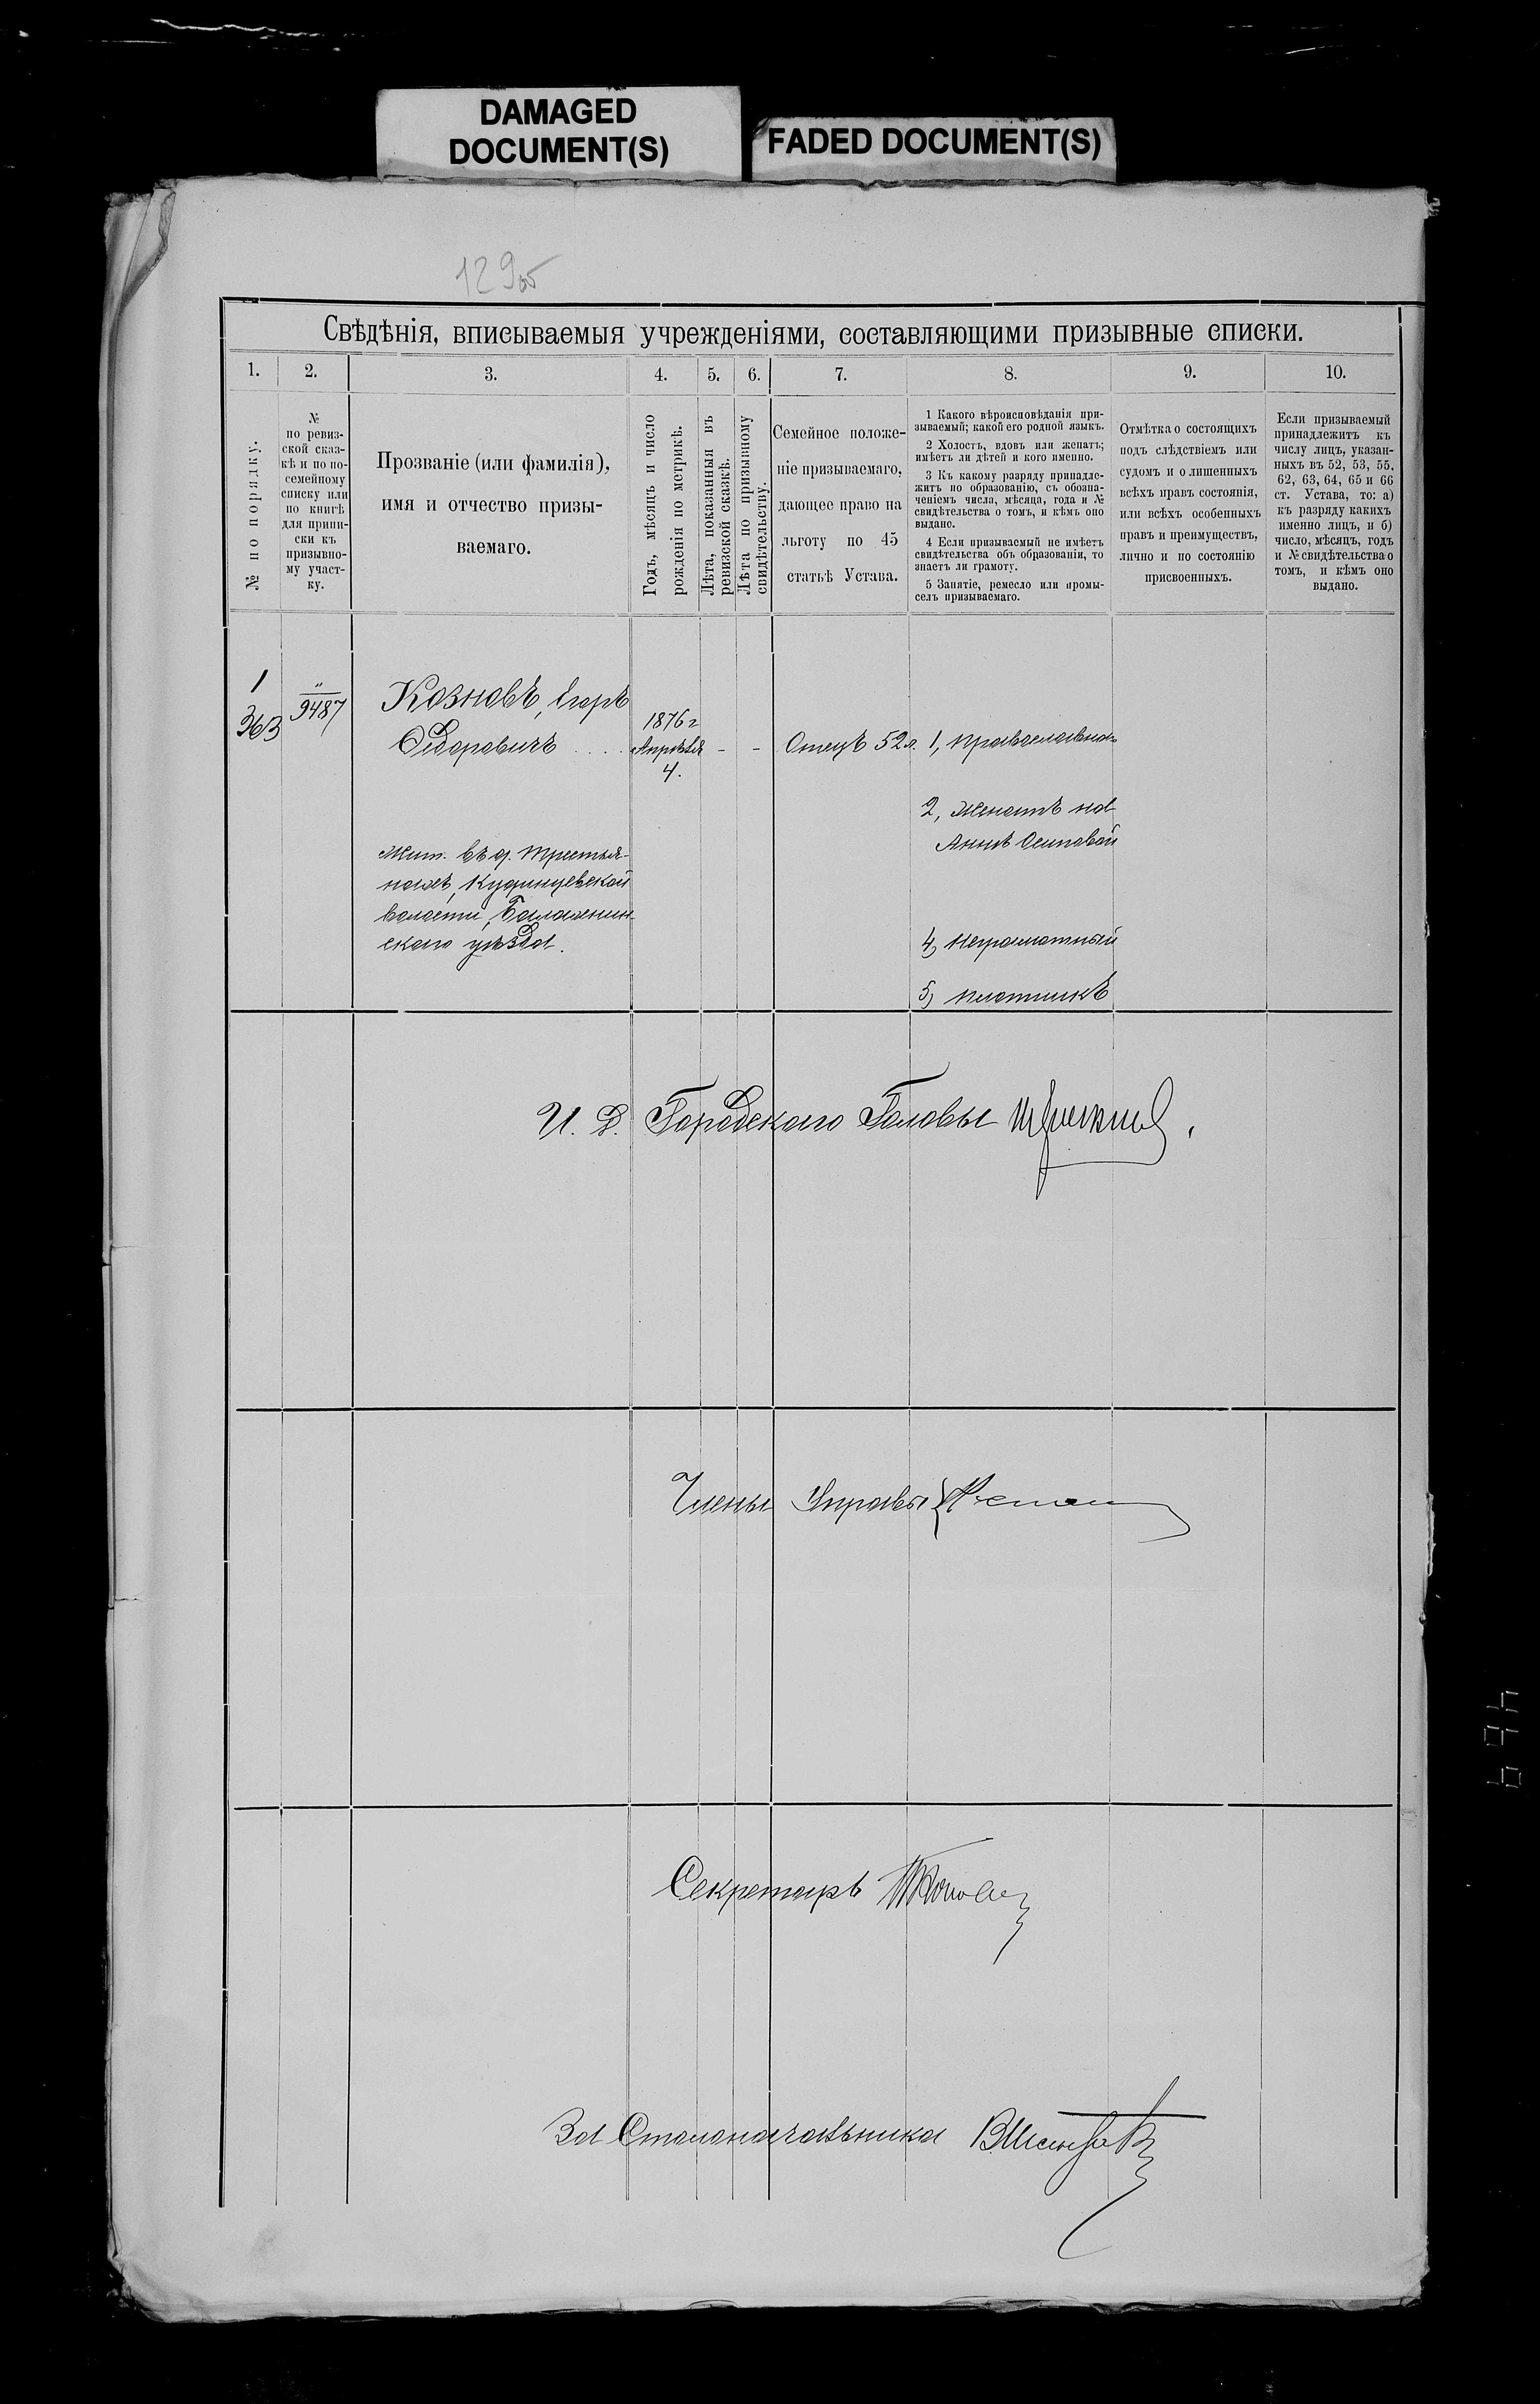 DAMAGED
DOCUMENT(S)
FADED DOCUMENT(S)
129об
Свѣдѣнія, вписываемыя учрежденіями, составляющими призывные списки.
1. 2. 3. 4. 5. 6. 7. 8. 9. 10.
№ по порядку.
№
по ревиз-
ской сказ-
кѣ и по по-
семейному
списку или
по книгѣ
для припи-
ски къ
призывно-
му участ-
ку.
Прозваніе (или фамилія),
имя и отчество призы-
ваемаго.
Годъ, мѣсяцъ и число
рожденія по метрикѣ.
Лѣта, показанныя въ
ревизской сказкѣ.
Лѣта по призывному
свидѣтельству.
Семейное положе-
ніе призываемаго,
дающее право на
льготу по 45
статьѣ Устава.
1 Какого вѣроисповѣданія при-
зываемый; какой его родной языкъ.
2 Холостъ, вдовъ или женатъ;
имѣетъ ли дѣтей и кого именно.
3 Къ какому разряду принадле-
житъ по образованію, съ обозна-
ченіемъ числа, мѣсяца, года и №
свидѣтельства о томъ, и кѣмъ оно
выдано.
4 Если призываемый не имѣетъ
свидѣтельства объ образованіи, то
знаетъ ли грамоту.
5 Занятіе, ремесло или промы-
селъ призываемаго.
Отмѣтка о состоящихъ
подъ слѣдствіемъ или
судомъ и о лишенныхъ
всѣхъ правъ состоянія,
или всѣхъ особенныхъ
правъ и преимуществъ,
лично и по состоянію
присвоенныхъ.
Если призываемый
принадлежитъ къ
числу лицъ, указан-
ныхъ въ 52, 53, 55,
62, 63, 64, 65 и 66
ст. Устава, то: а)
къ разряду какихъ
именно лицъ, и б)
число, мѣсяцъ, годъ
и № свидѣтельства о
томъ, и кѣмъ оно
выдано.
1
363
"
9487
Козновъ, Егоръ
Ѳедоровичъ . . . .
1876 г
Апрѣля
4.
- -
Отецъ 52 л.
1, православнаго
2, Женатъ на
Аннѣ Осиповой
Жит. въ д. Тростья-
Волости,
скаго уѣзда.
4, неграмотный
5, плотникъ
И. Д. Городского Головы
Члены Управы
Секретарь
За Столоначальника
469